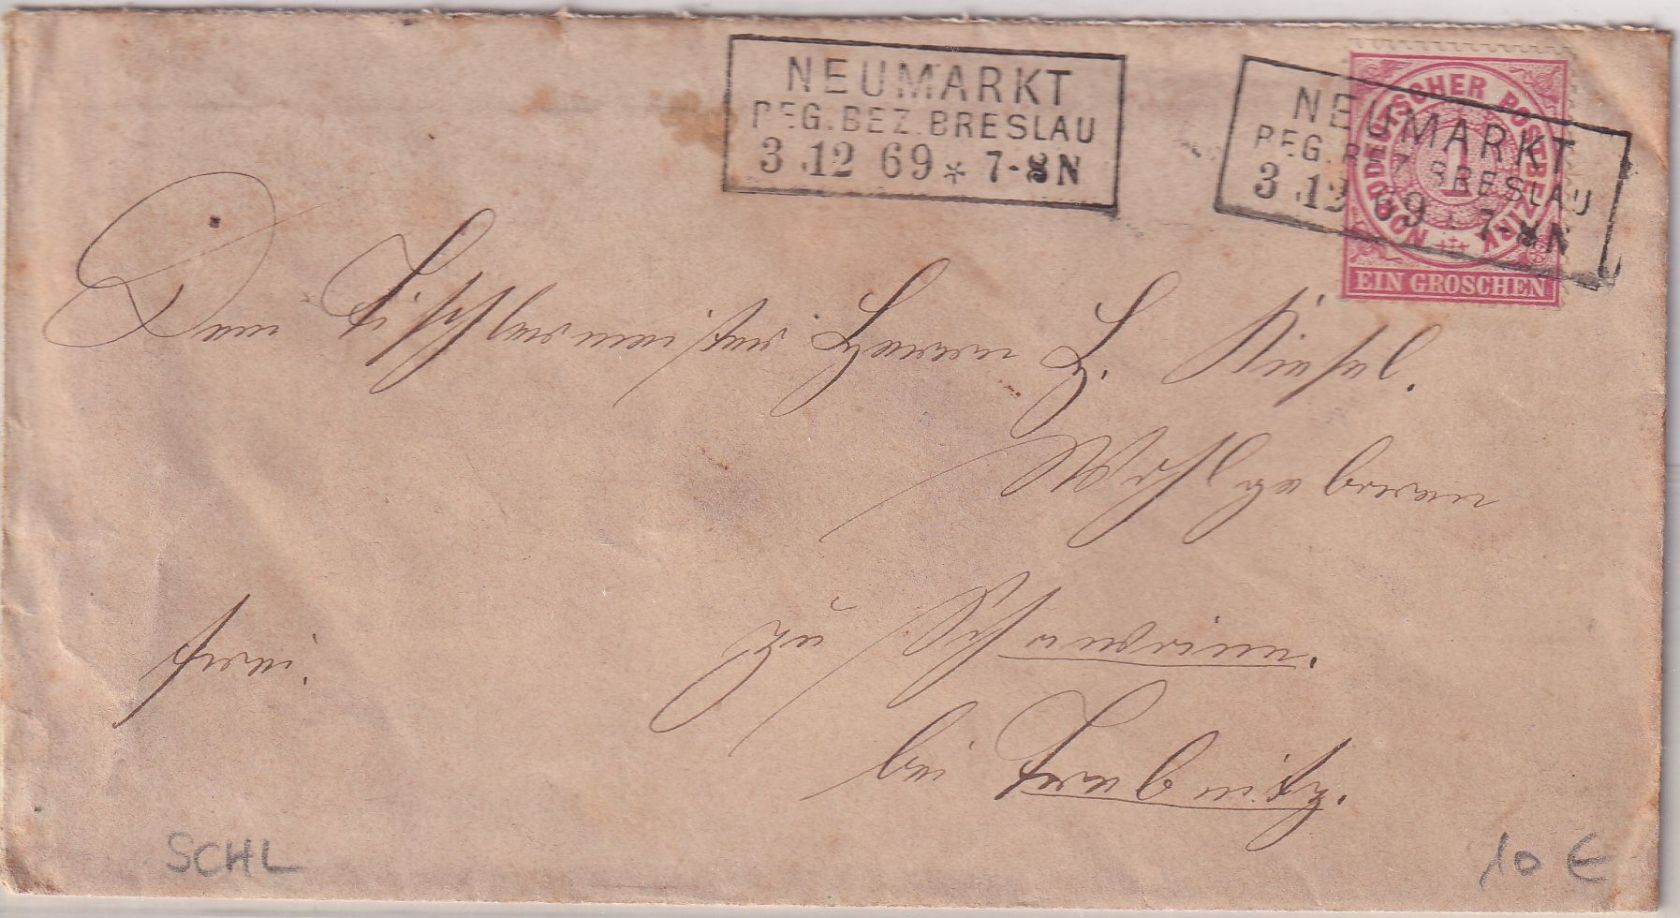 NEUMARKT
REG. BEZ. BRESLAU
3 12 69 * 7-8 N
NEUMARKT
REG. BEZ. BRESLAU
3 12 69 * 7-8 N
NORDDEUTSCHER POSTBEZIRK
1
EIN GROSCHEN
Dem Tischlermeister Herrn H. Kiesel.
Wohlgeboren
zu
frei.
bei Trebnitz.
SCHL
10 €